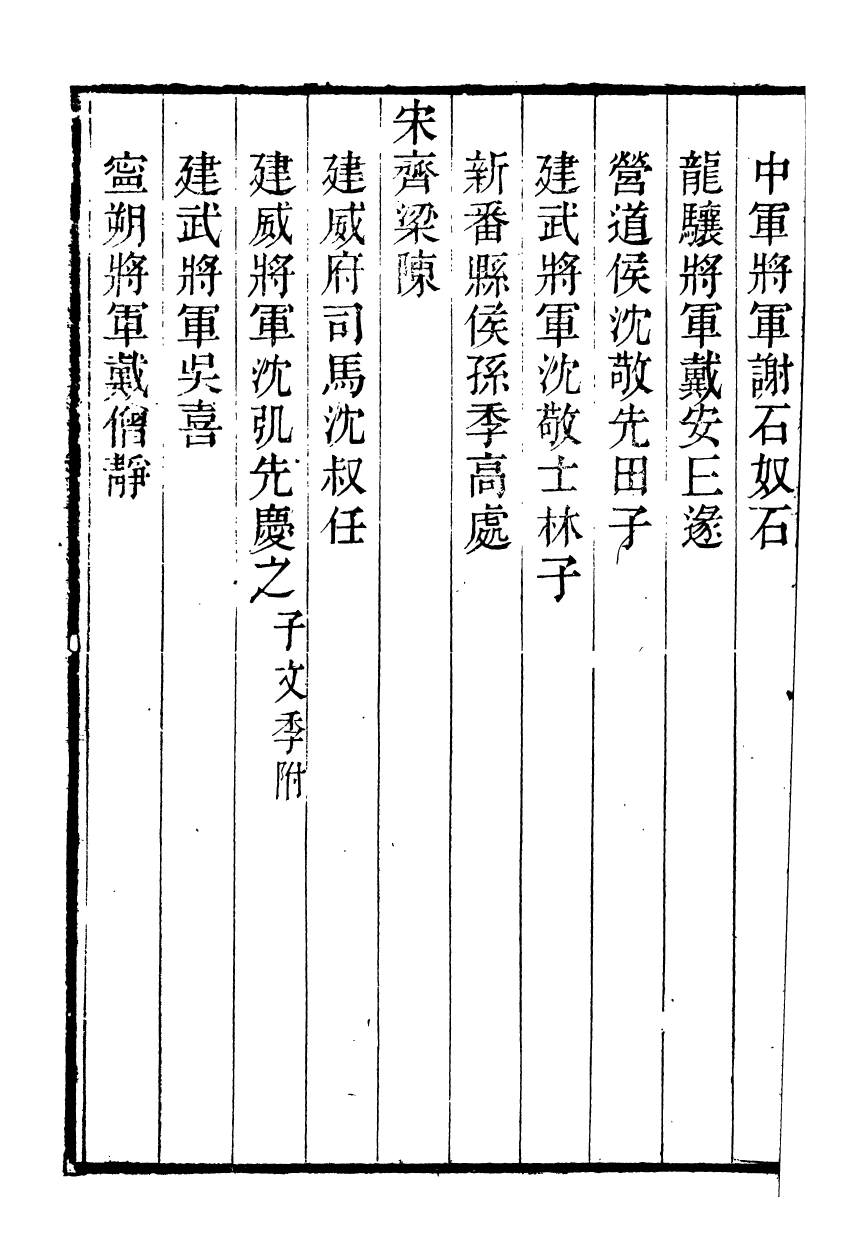 中軍將軍謝石奴石
龍驤將軍戴安丘遂
營道侯沈敬先田子
建武將軍沈敬士林子
新番縣侯孫季高處
宋齊梁陳
建威府司馬沈叔任
建威將軍沈弘先慶之子文季附
建武將軍吳喜
寍朔將軍戴僧靜